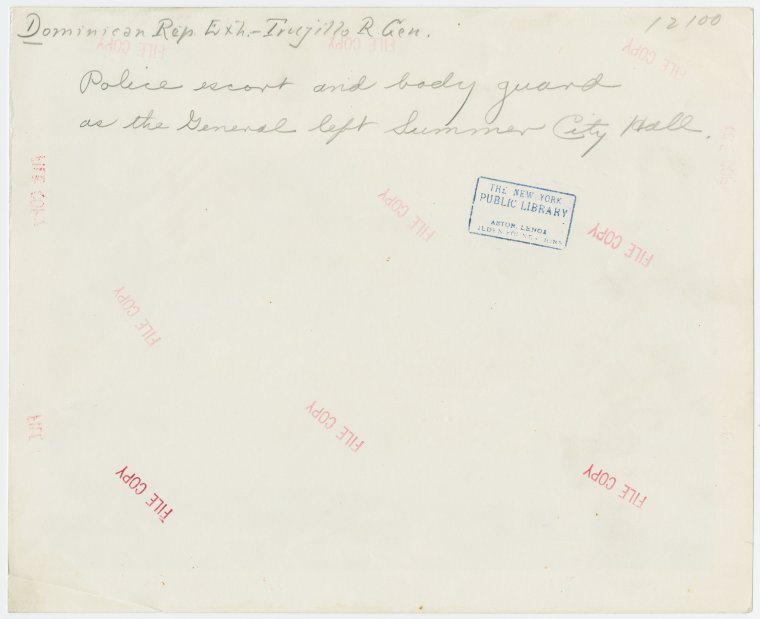 Dominican Rep. Exh.- Trujillo R Gen.
12100
Police escort and body guard
as the General left Summer City Hall.
THE NEW YORK
PUBLIC LIBRARY
ASTOR, LENOX
TILDEN FOUNDATIONS
FILE COPY
FILE COPY
FILE COPY
FILE COPY
FILE COPY
FILE COPY
FILE COPY
FILE COPY
FILE COPY
FILE COPY